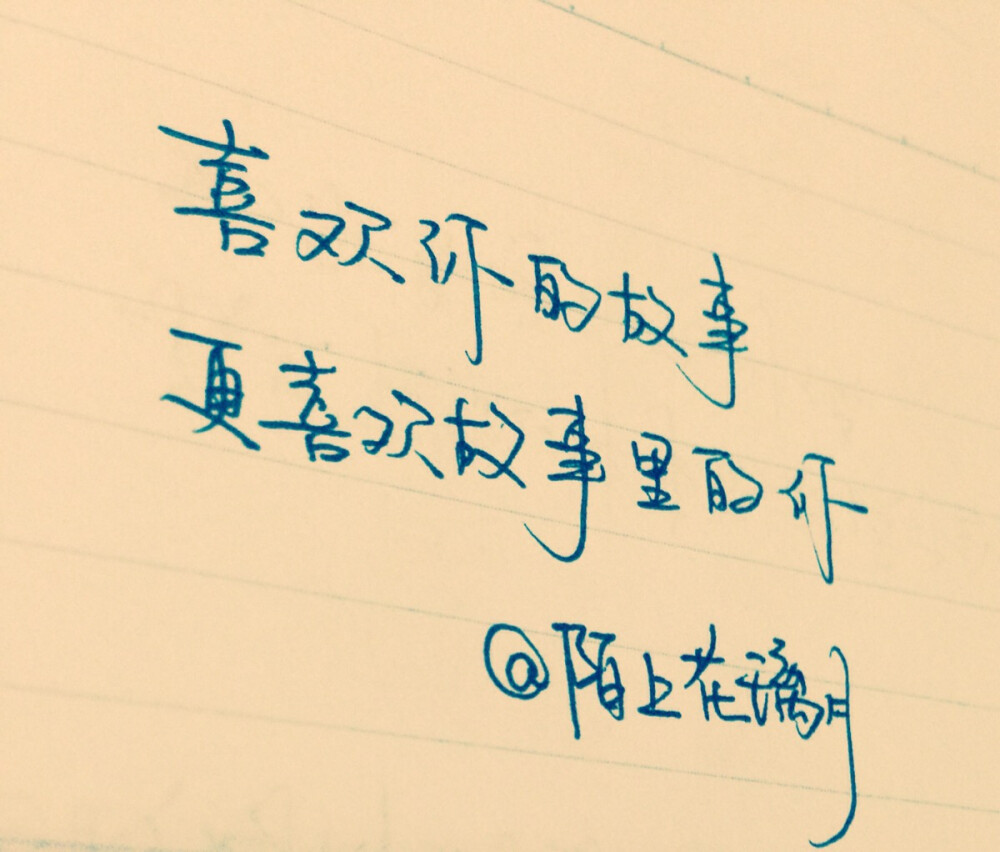 喜欢你的故事
更喜欢故事里的你
@陌上花璃月